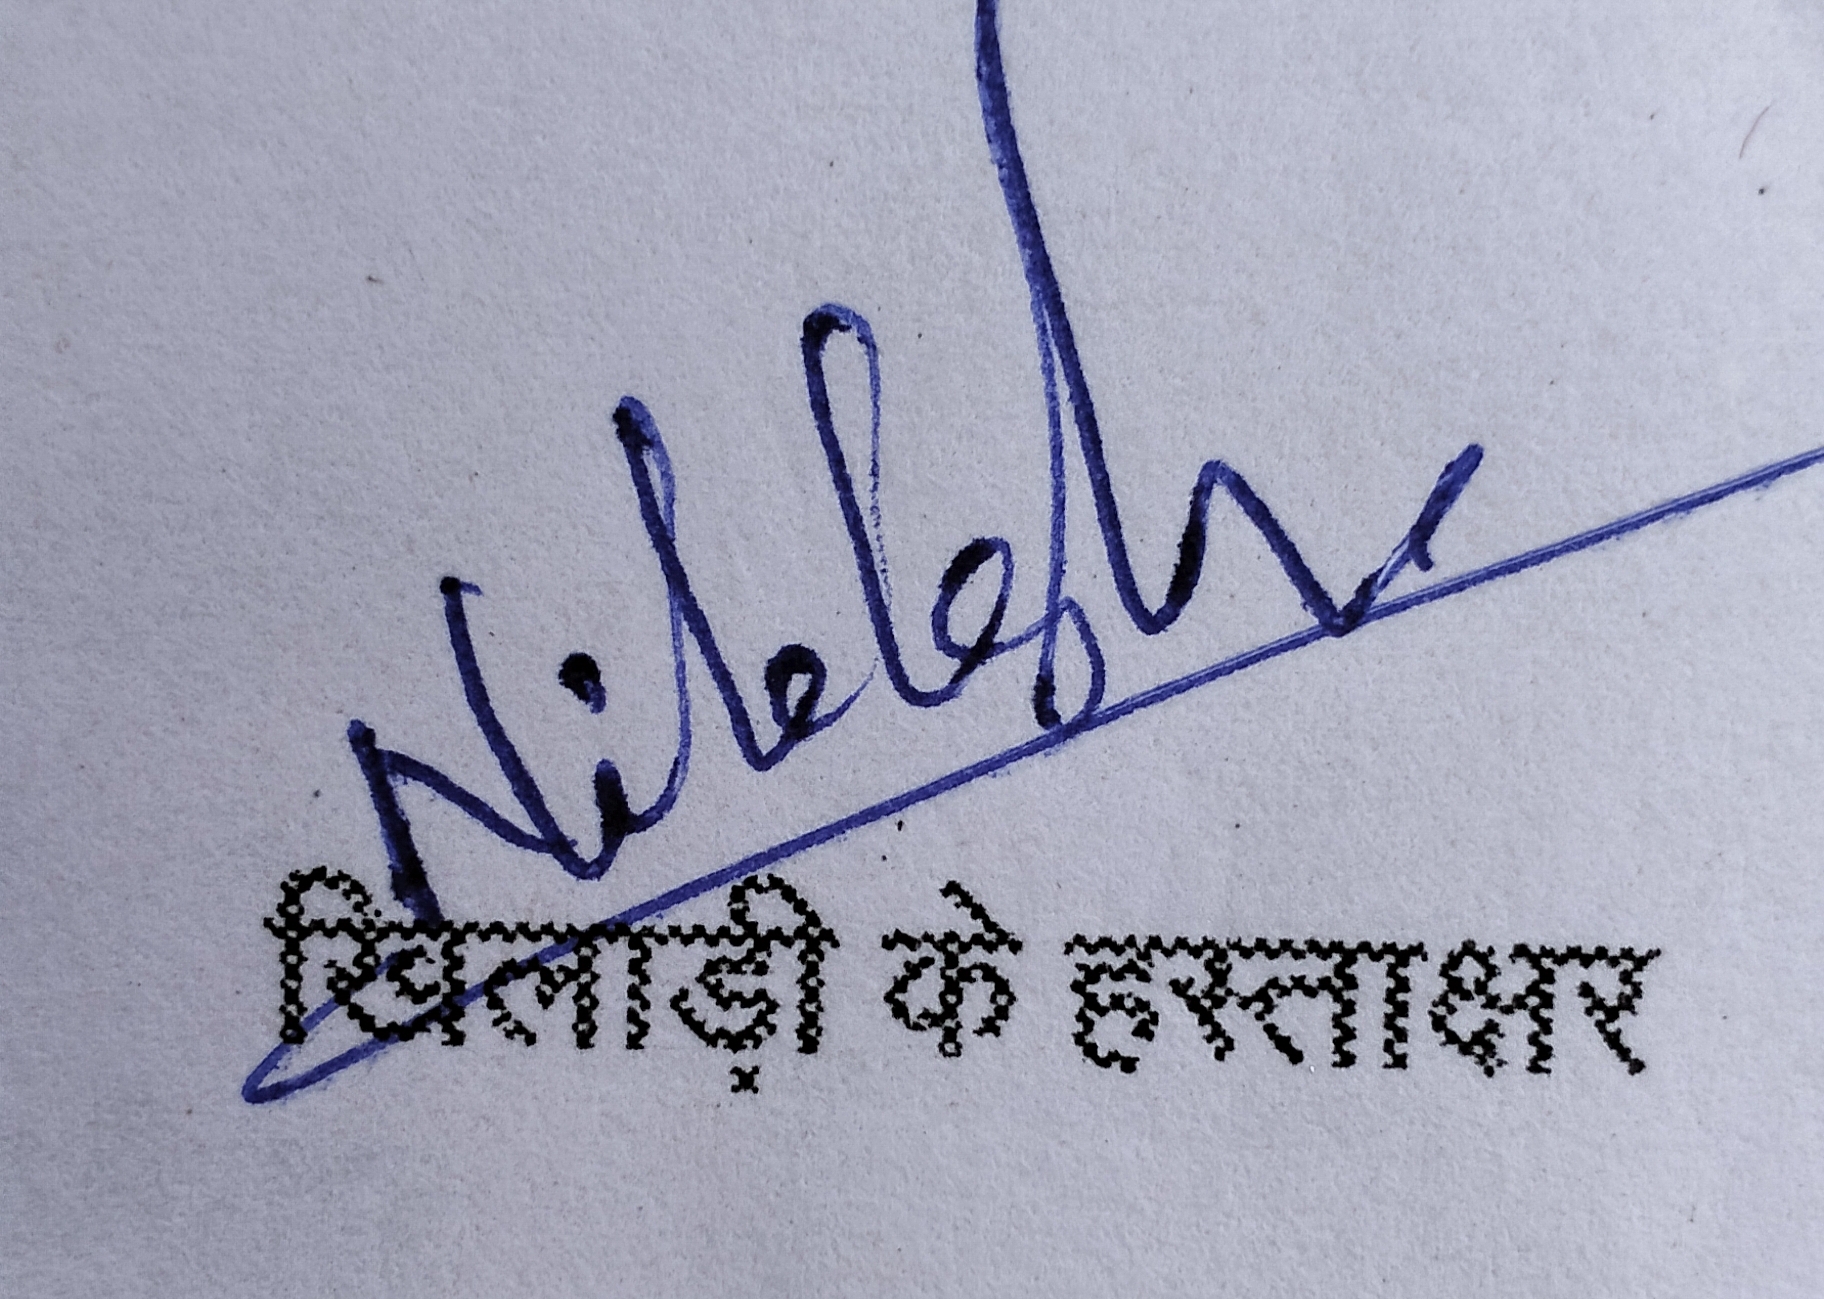 Nilesh
खिलाड़ी के हस्ताक्षर